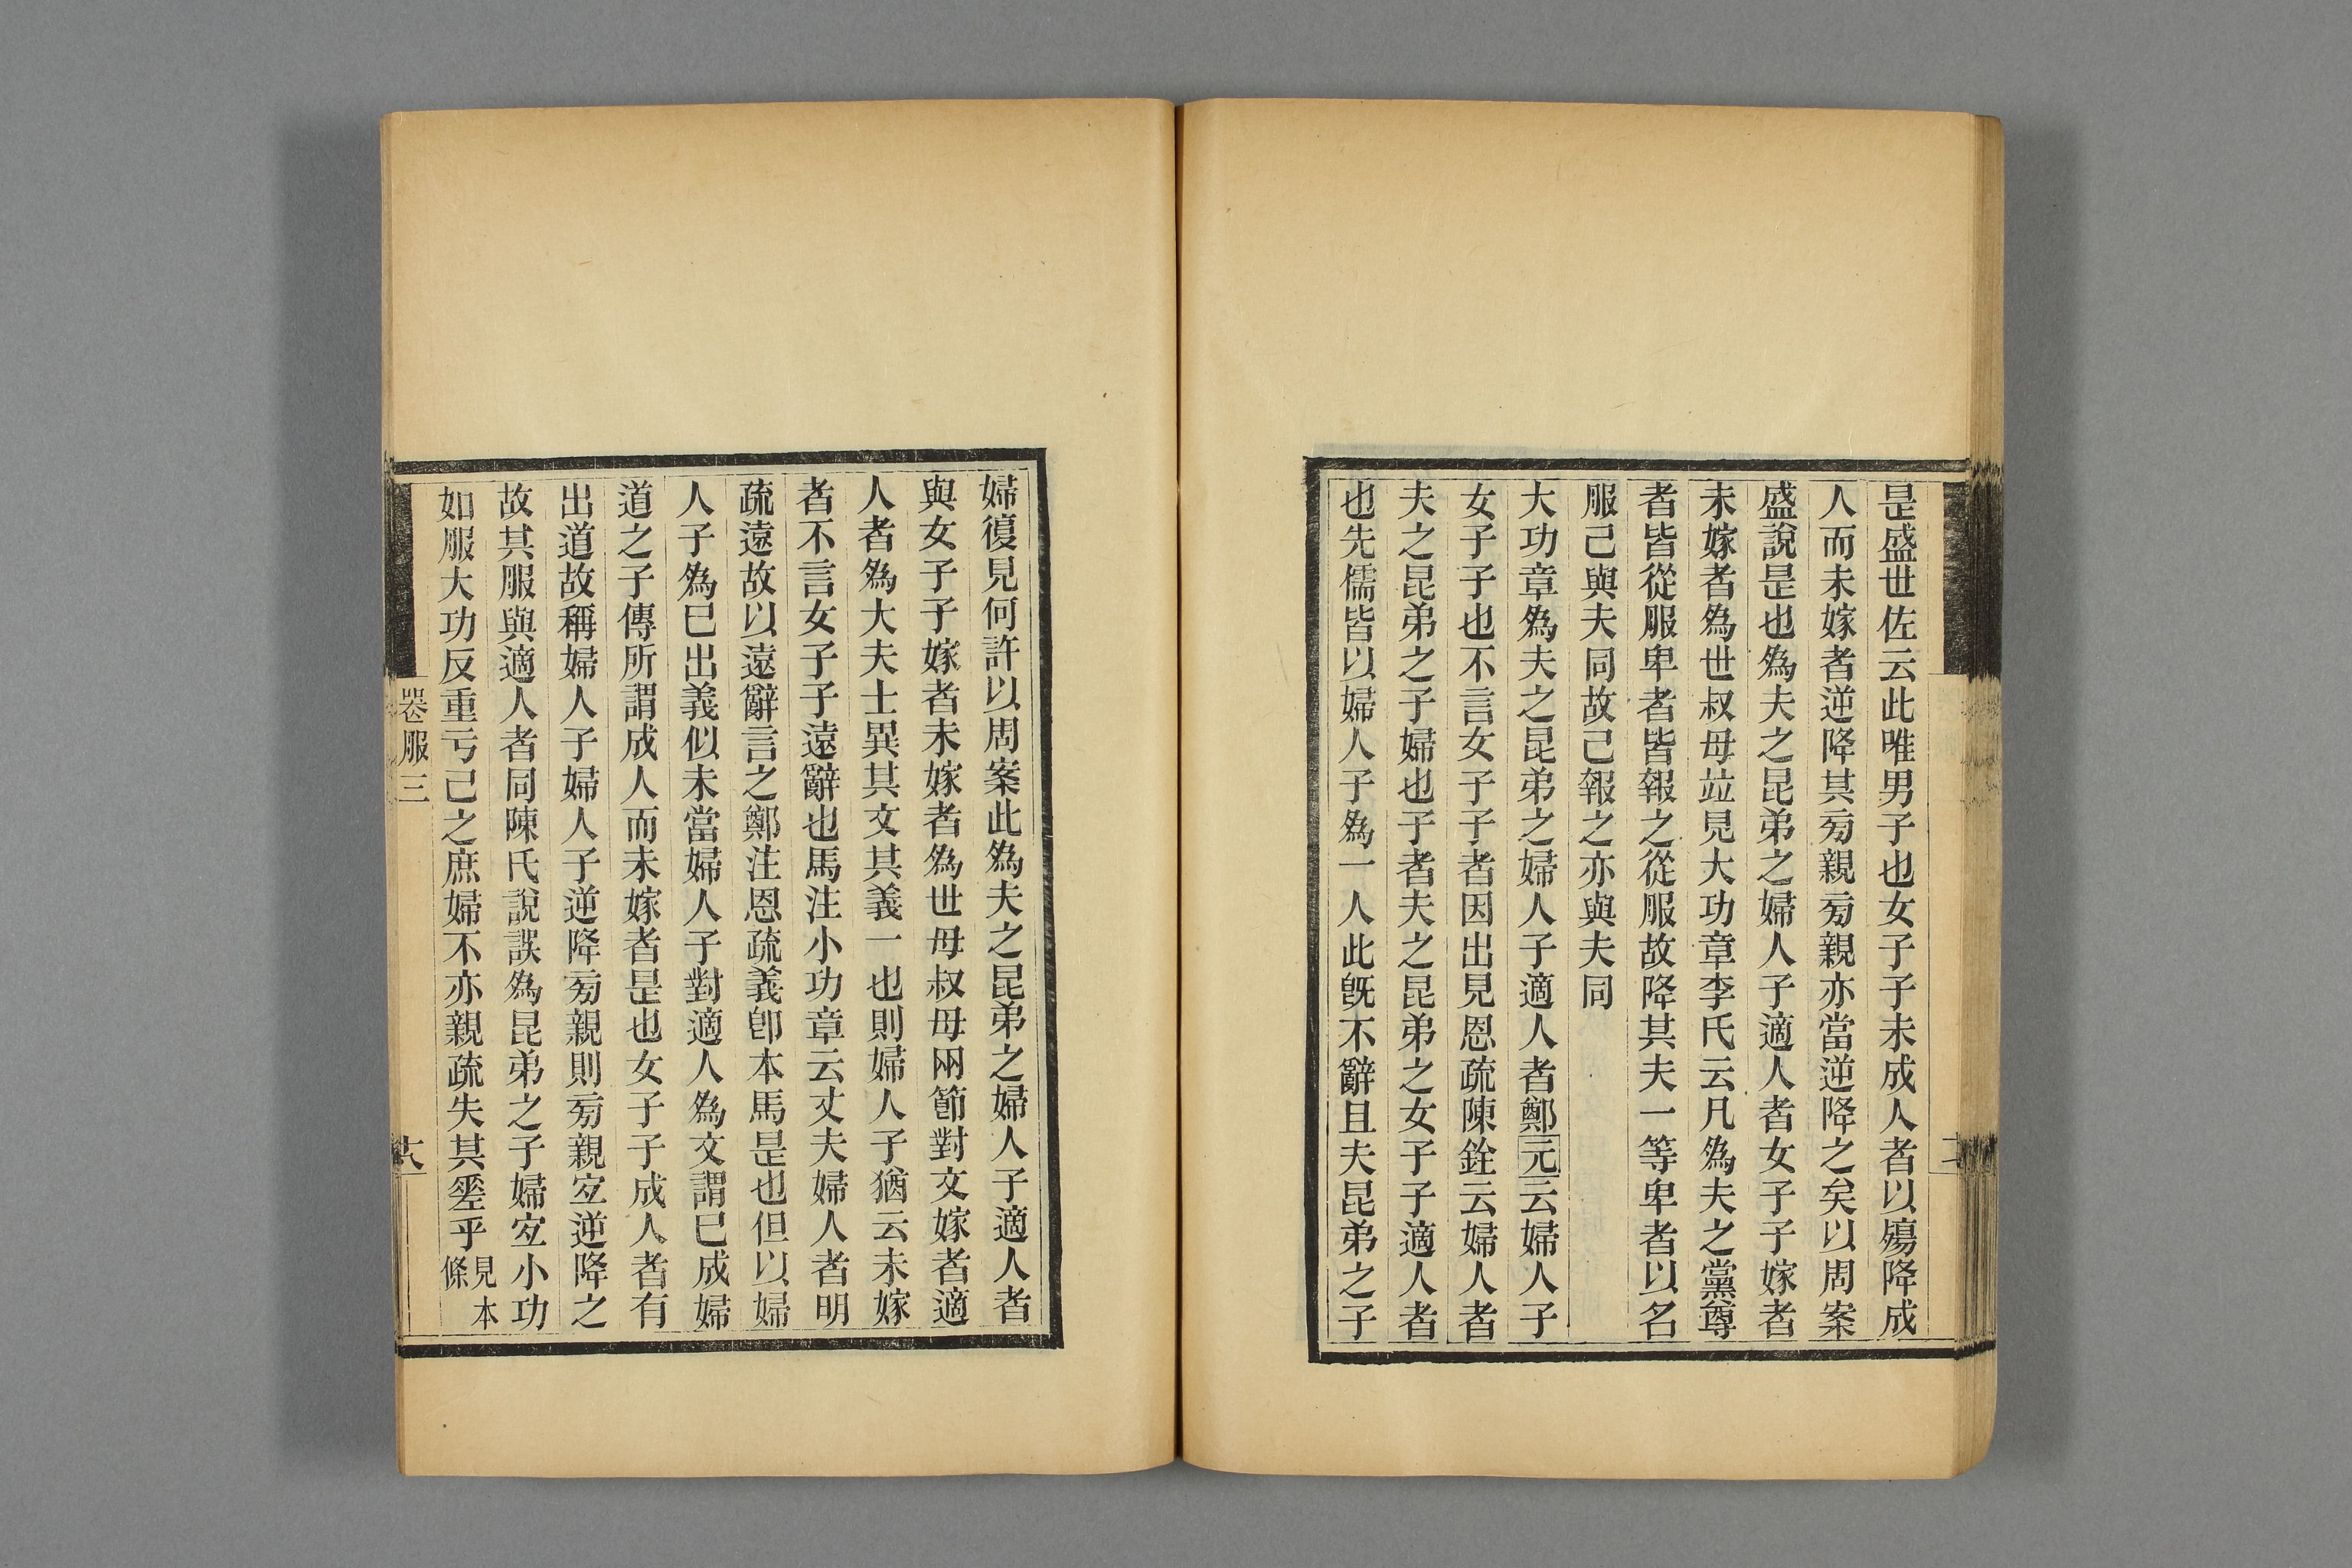 是盛世佐云此唯男子也女子子未成人者以殤降成
人而未嫁者逆降其㫄親㫄親亦當逆降之矣以周案
盛說是也爲夫之昆弟之婦人子適人者女子子嫁者
未嫁者爲世叔母竝見大功章李氏云凡爲夫之黨尊
者皆從服卑者皆報之從服故降其夫一等卑者以名
服己與夫同故己報之亦與夫同
大功章爲夫之昆弟之婦人子適人者鄭元云婦人子
女子子也不言女子子者因出見恩疏陳銓云婦人者
夫之昆弟之子婦也子者夫之昆弟之女子子適人者
也先儒皆以婦人子爲一人此旣不辭且夫昆弟之子
婦復見何許以周案此爲夫之昆弟之婦人子適人者
與女子子嫁者未嫁者爲世母叔母兩節對文嫁者適
人者爲大夫士異其文其義一也則婦人子猶云未嫁
者不言女子子遠辭也馬注小功章云丈夫婦人者明
疏遠故以遠辭言之鄭注恩疏義卽本馬是也但以婦
人子爲已出義似未當婦人子對適人爲文謂已成婦
道之子傳所謂成人而未嫁者是也女子子成人者有
出道故稱婦人子婦人子逆降㫄親則㫄親宐逆降之
故其服與適人者同陳氏說誤爲昆弟之子婦宐小功
如服大功反重亏己之庶婦不亦親疏失其墏乎見本條
喪服三
十八